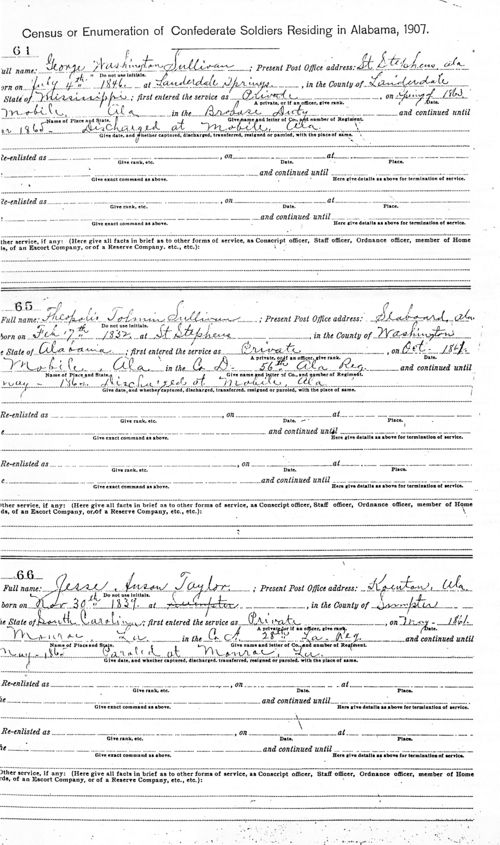 Census or Enumeration of Confederate Soldiers Residing in Alabama, 1907.
64
ull name: George Washington Sullivan ; Present Post Office address: St Stephens, Ala
Do not use initials.
orn on July 4th 1846 at Lauderdale Springs , in the County of Lauderdale
State of Mississippi ; first entered the service as Private , on Spring of 1863
A private, or if an officer, give rank. Date.
Mobile, Ala in the Duty and continued until
Name of Place and State. Give name and letter of Co., and number of Regiment.
1865 Discharged at Mobile, Ala
Give date, and whether captured, discharged, transferred, resigned or paroled, with the place of same.
Re-enlisted as , on at
Give rank, etc. Date. Place.
and continued until
Give exact command as above. Here give details as above for termination of service.
Re-enlisted as , on at
Give rank, etc. Date. Place.
and continued until
Give exact command as above. Here give details as above for termination of service.
ther service, if any: (Here give all facts in brief as to other forms of service, as Conscript officer, Staff officer, Ordnance officer, member of Home
s, of an Escort Company, or of a Reserve Company, etc., etc.):
65
Full name: Theopolis Tolmin Sullivan ; Present Post Office address: Seaboard, Ala
Do not use initials.
born on Feb 7th 1832 at St Stephens , in the County of Washington
e State of Alabama ; first entered the service as Private , on Oct
A private, or if an officer, give rank. Date.
Mobile, Ala in the Co D. 56th Ala Reg and continued until
Name of Place and State. Give name and letter of Co., and number of Regiment.
may Discharged at Mobile, Ala
Give date, and whether captured, discharged, transferred, resigned or paroled, with the place of same.
Re-enlisted as , on at
Give rank, etc. Date. Place.
e and continued until
Give exact command as above. Here give details as above for termination of service.
Re-enlisted as , on at
Give rank, etc. Date. Place.
e and continued until
Give exact command as above. Here give details as above for termination of service.
Other service, if any: (Here give all facts in brief as to other forms of service, as Conscript officer, Staff officer, Ordnance officer, member of Home
ds, of an Escort Company, or of a Reserve Company, etc., etc.):
66
Full name: Jesse Anson Taylor ; Present Post Office address: Koenton, Ala
Do not use initials.
born on Nov 30th 1837 at Sumpter , in the County of Sumpter
he State of South Carolina ; first entered the service as Private , on May 1861
A private, or if an officer, give rank. Date.
Monroe, La in the Co A 28th La Reg and continued until
Name of Place and State. Give name and letter of Co., and number of Regiment.
May Paroled at Monroe, La.
Give date, and whether captured, discharged, transferred, resigned or paroled, with the place of same.
Re-enlisted as , on at
Give rank, etc. Date. Place.
he and continued until
Give exact command as above. Here give details as above for termination of service.
Re-enlisted as , on at
Give rank, etc. Date. Place.
he and continued until
Give exact command as above. Here give details as above for termination of service.
Other service, if any: (Here give all facts in brief as to other forms of service, as Conscript officer, Staff officer, Ordnance officer, member of Home
rds, of an Escort Company, or of a Reserve Company, etc., etc.):